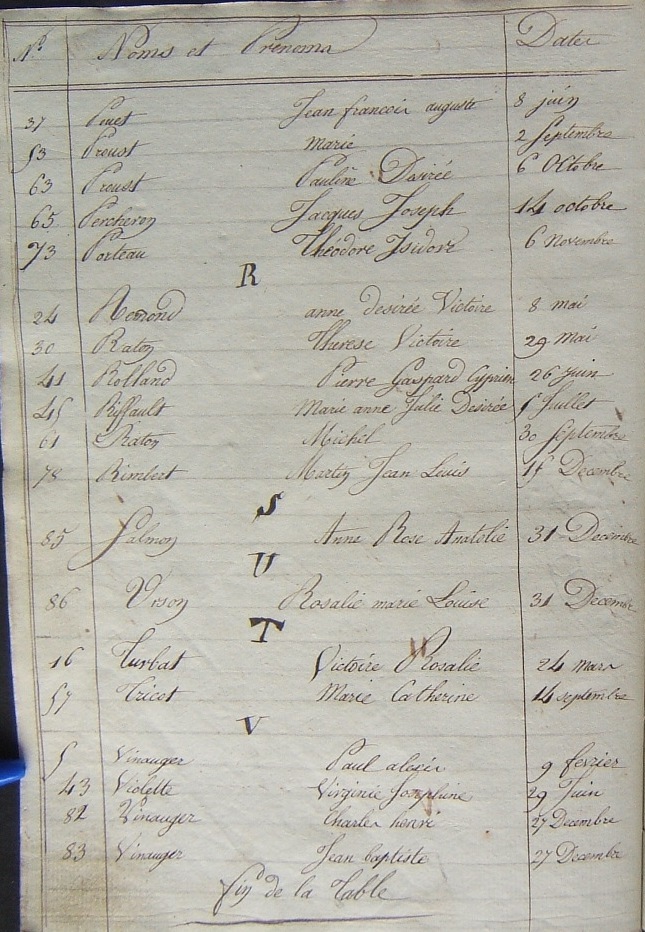 N.º Noms et Prénoms Dates
37 Pinet Jean francois auguste 8 juin
53 Proust marie 2 Septembre
63 Proust Pauline Desirée 6 Octobre
65 Percheron Jacques Joseph 14 octobre
73 Porteau Théodore Isidore 6 Novembre
R
24 Remond anne desirée Victoire 8 mai
30 Raton Therese Victoire 29 Mai
41 Rolland Pierre Gaspard Cyprien 26 juin
45 Riffault Marie anne Julie Desirée 5 Juillet
61 Raton Michel 30 Septembre
78 Rimbert Martin Jean Louis 15 Decembre
S
85 Salmon Anne Rose Anatolie 31 Decembre
U
86 Urson Rosalie marie Louise 31 Decembre
T
16 Turbat Victoire Rosalie 24 mars
57 Tricot Marie Catherine 14 septembre
V
5 Vinauger Paul alexis 9 fevrier
43 Violette Virginie Josephine 29 Juin
82 Vinauger Charles henri 27 Decembre
83 Vinauger Jean baptiste 27 Decembre
fin de la Table